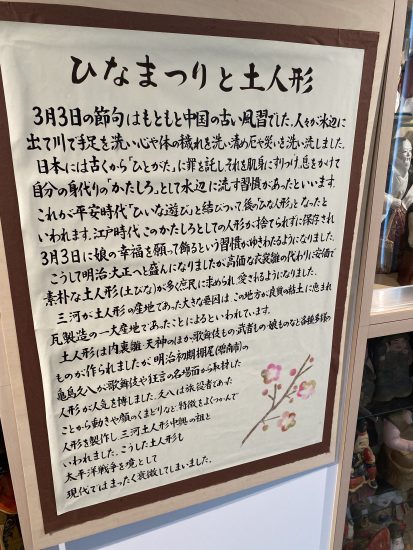 ひなまつりと土人形
3月3日の節句はもともと中国の古い風習でした。人々が水辺に
出て川で手足を洗い心や体の穢れを洗い清め厄や災いを洗い流しました。
日本には古くから「ひとがた」に罪を託しそれを肌身にすりつけ息をかけて
自分の身代りの「かたしろ」として水辺に流す習慣があったといいます。
これが平安時代「ひいな遊び」と結びついて後の「ひな人形」となったと
いわれます。江戸時代このかたしろとしての人形が捨てられずに保存され
3月3日に娘の幸福を願って飾るという習慣がゆきわたるようになりました。
こうして明治大正へと盛んになりましたが高価な衣裳雛の代わりに安価で
素朴な土人形(土びな)が多く庶民に求められ愛されるようになりました。
三河が土人形の産地であった大きな要因は、この地方が良質の粘土に恵まれ
瓦製造の一大産地であったことによるといわれています。
土人形は内裏雛・天神のほか歌舞伎もの・武者もの・娘ものなど各種多様の
ものが作られましたが明治初期棚尾(碧南市)の
亀島久八が歌舞伎や狂言の名場面から取材した
人形が人気を博しました。久八は旅役者であった
ことから動きや顔のくまどりなど、特徴をよくつかんで
人形を製作し、三河土人形中興の祖と
いわれました。こうした土人形も
太平洋戦争を境として
現代ではまったく衰微してしまいました。